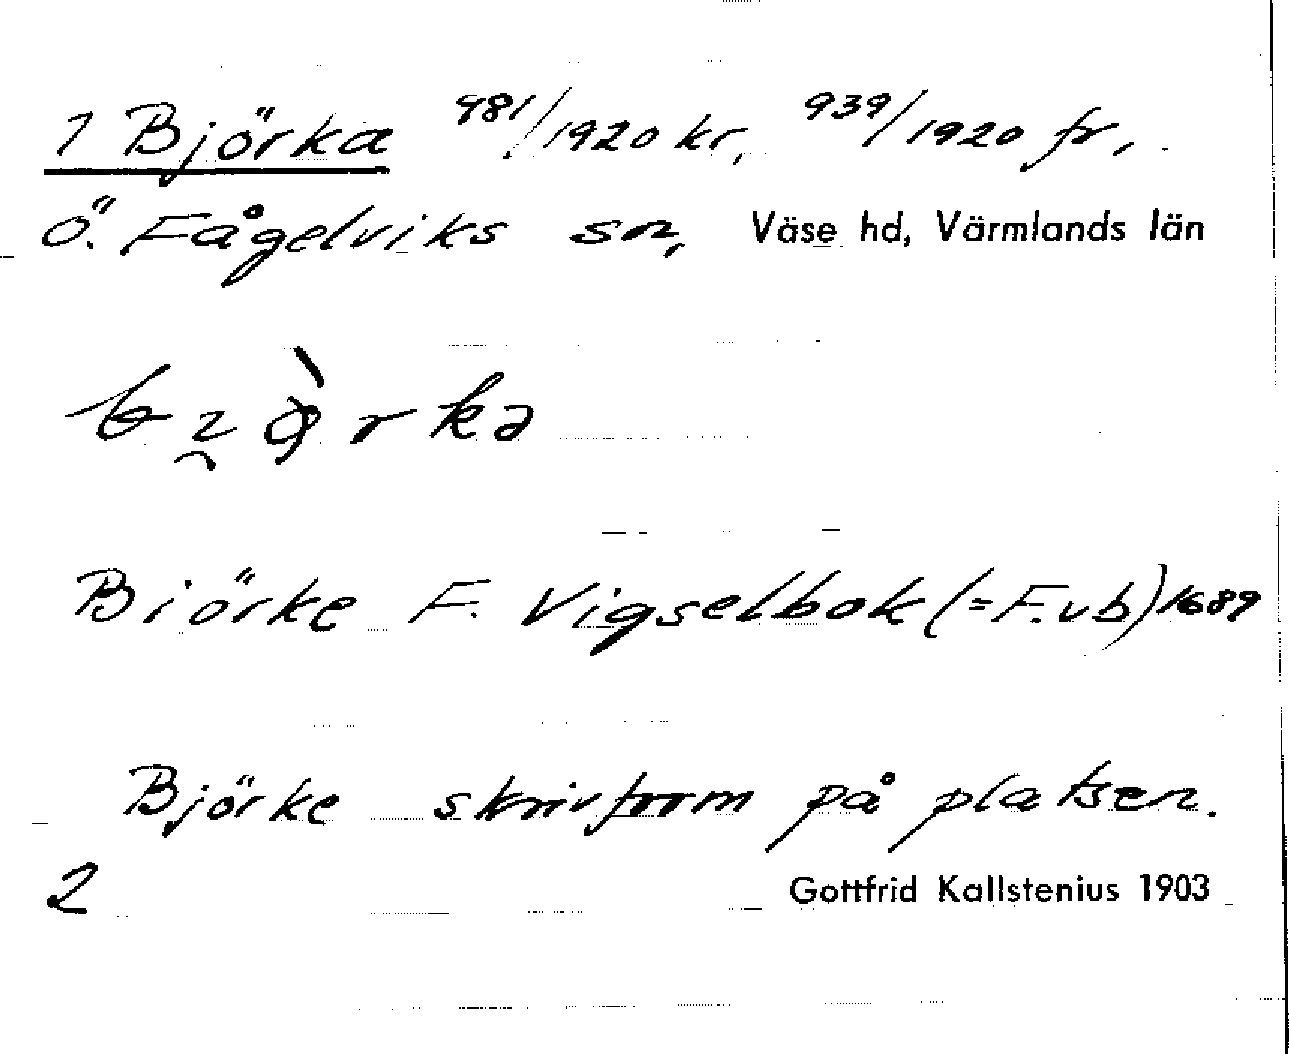 1 Björka 981/1920 kr, 939/1920 fr,
Ö. Fågelviks sn, Väse hd, Värmlands län
Biörke F. Vigselbok (=F.vb) 1689
Björke skrivform på platsen.
2 Gottfrid Kallstenius 1903